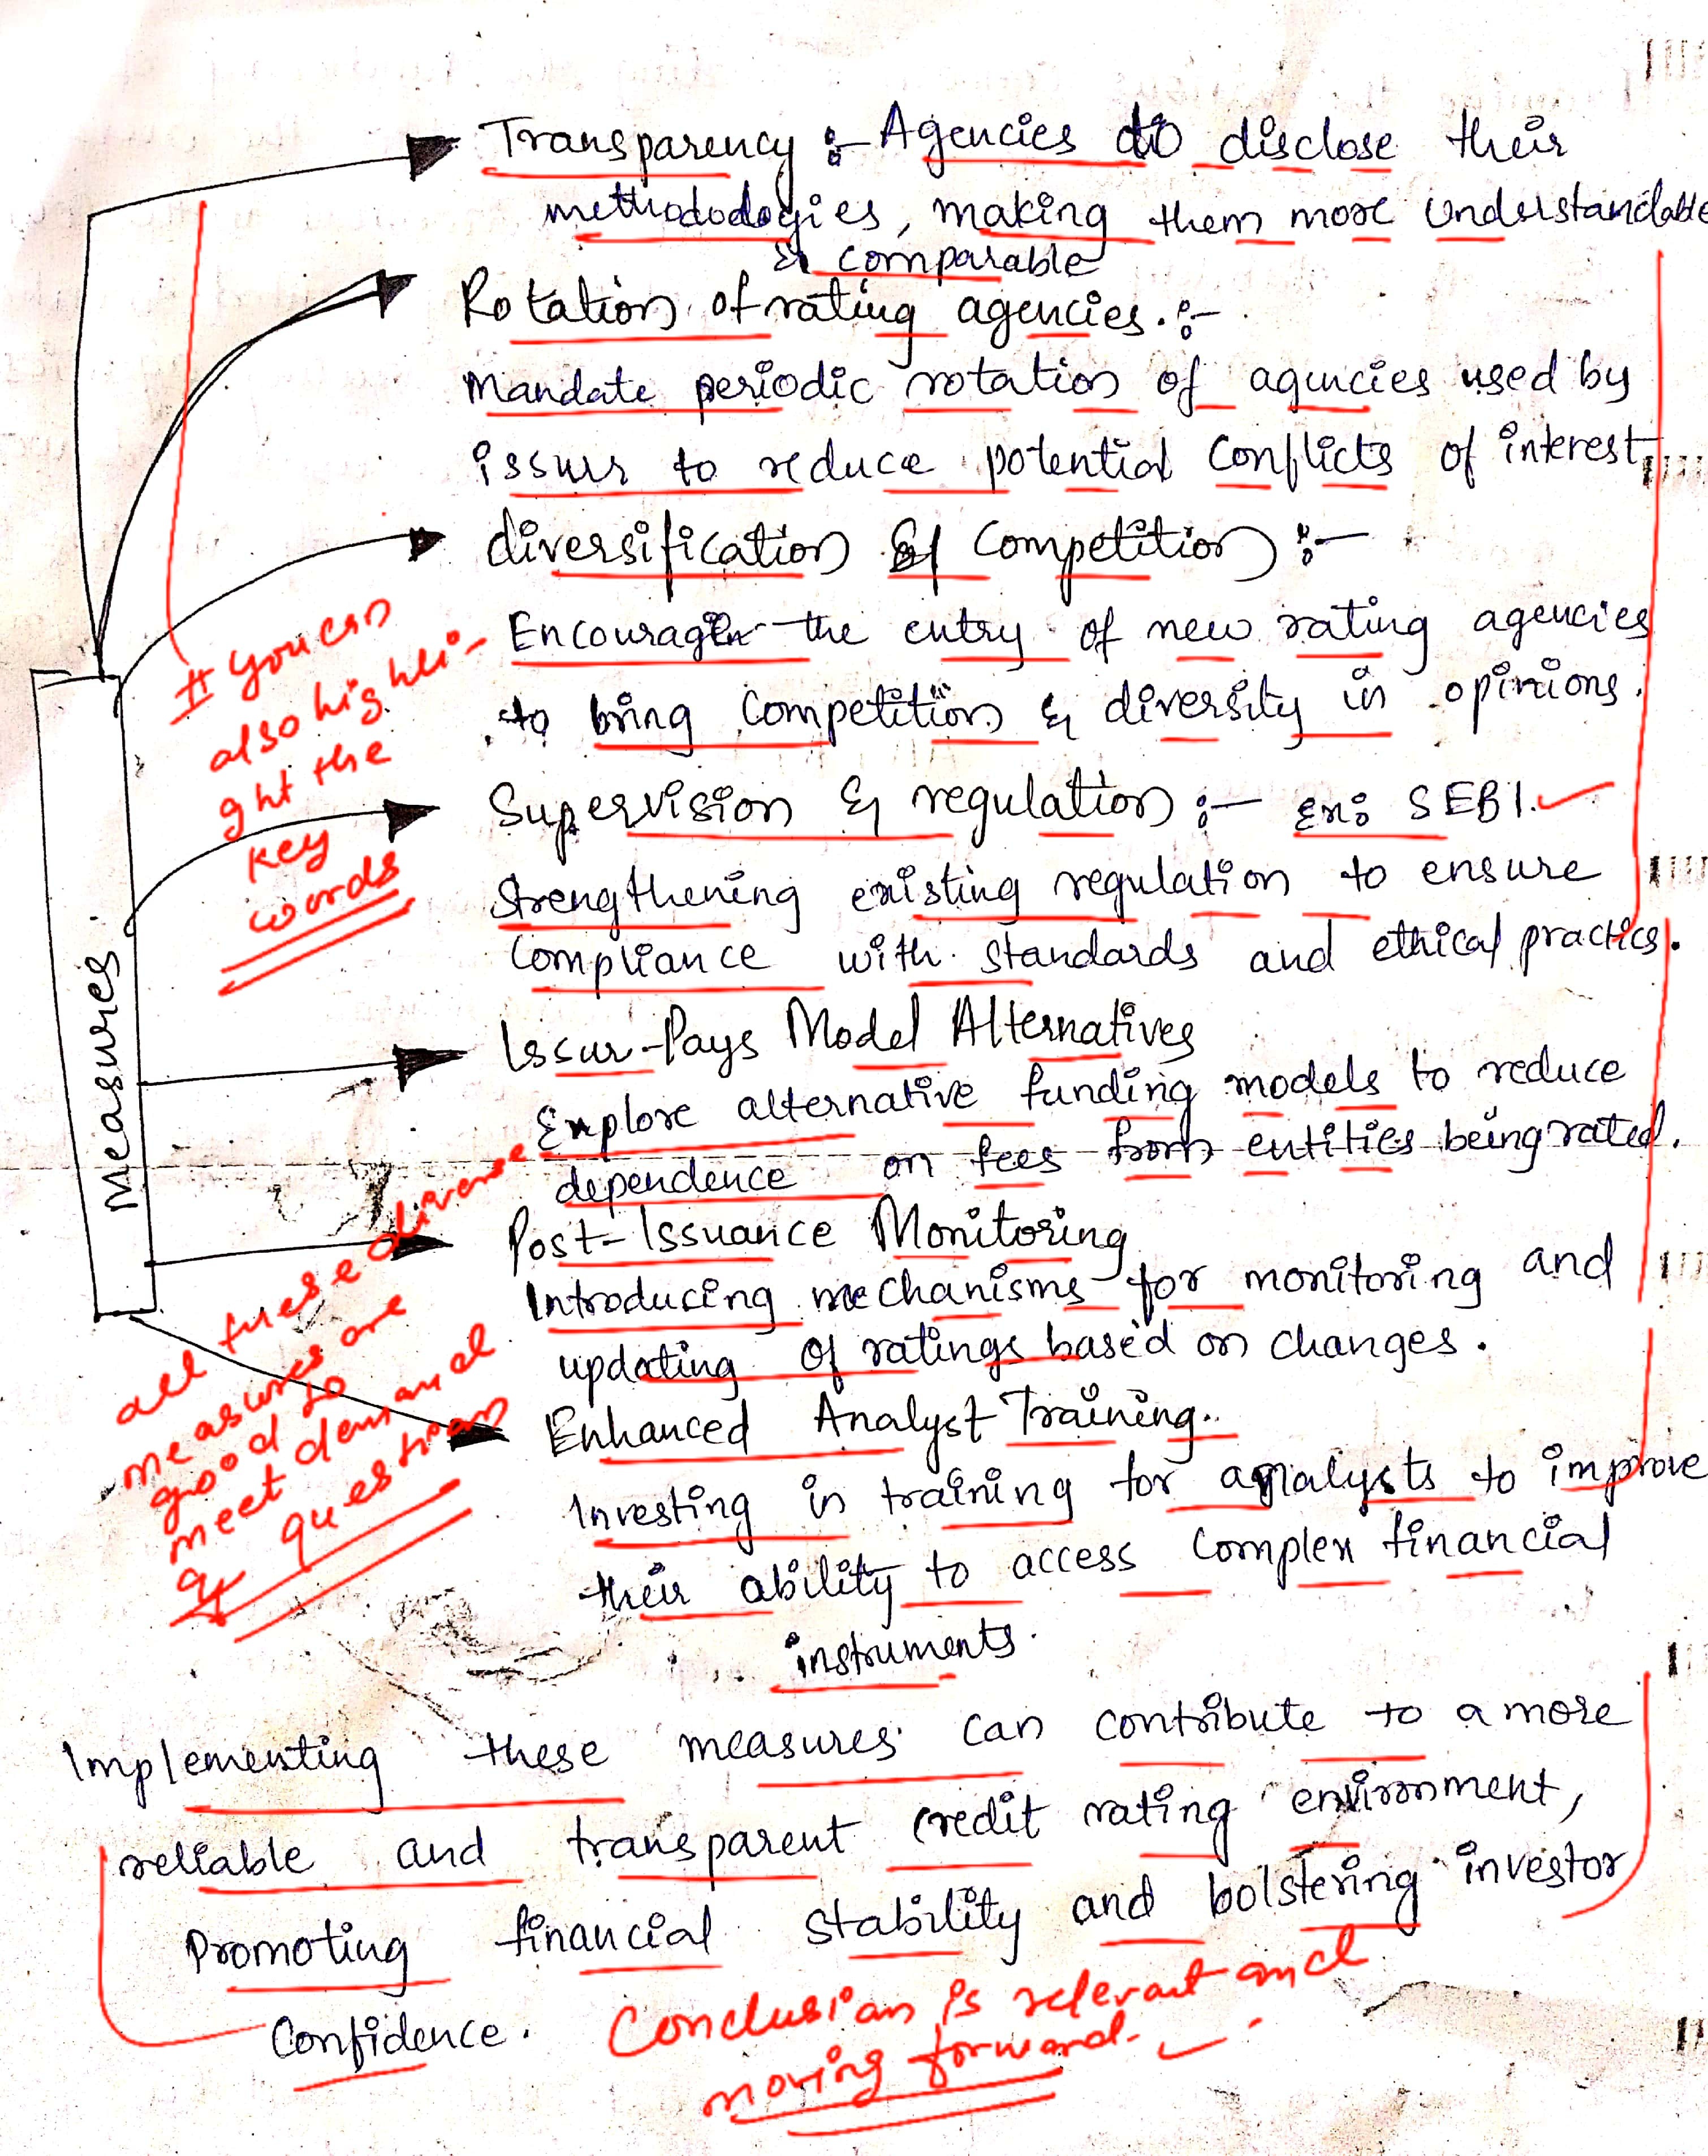 Transparency :- Agencies to disclose their
methododogies, making them more understandable
& comparable
Rotation of rating agencies. :-
Mandate periodic rotation of agencies used by
issurs to reduce potential conflicts of interest.
diversification & Competition :-
Encouragin the entry of new rating agencies
to bring competition & diversity in opinions.
# You can
also highli-
ght the
key
words
Supervision & regulation :- Ex: SEBI.
Strengthening existing regulation to ensure
compliance with standards and ethical practics.
Measures.
Issur-Pays Model Alternatives
Explore alternative funding models to reduce
dependence on fees from entities being rated.
Post-Issuance Monitoring
Introducing mechanisms for monitoring and
updating of ratings based on changes.
all these diverse
measures are
good to
meet demand
of question
Enhanced Analyst Training..
Investing in training for analysts to improve
their ability to access complex financial
instruments.
Implementing these measures can contribute to a more
reliable and transparent credit rating environment,
Promoting financial stability and bolstering investor
Confidence.
Conclusion is relevant and
moving forward.